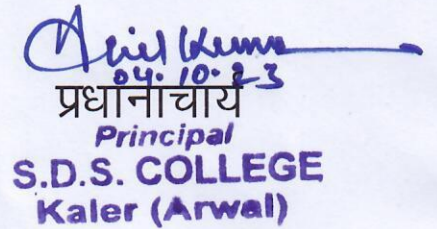 04.10.23
प्रधानाचार्य
Principal
S.D.S. COLLEGE
Kaler (Arwal)